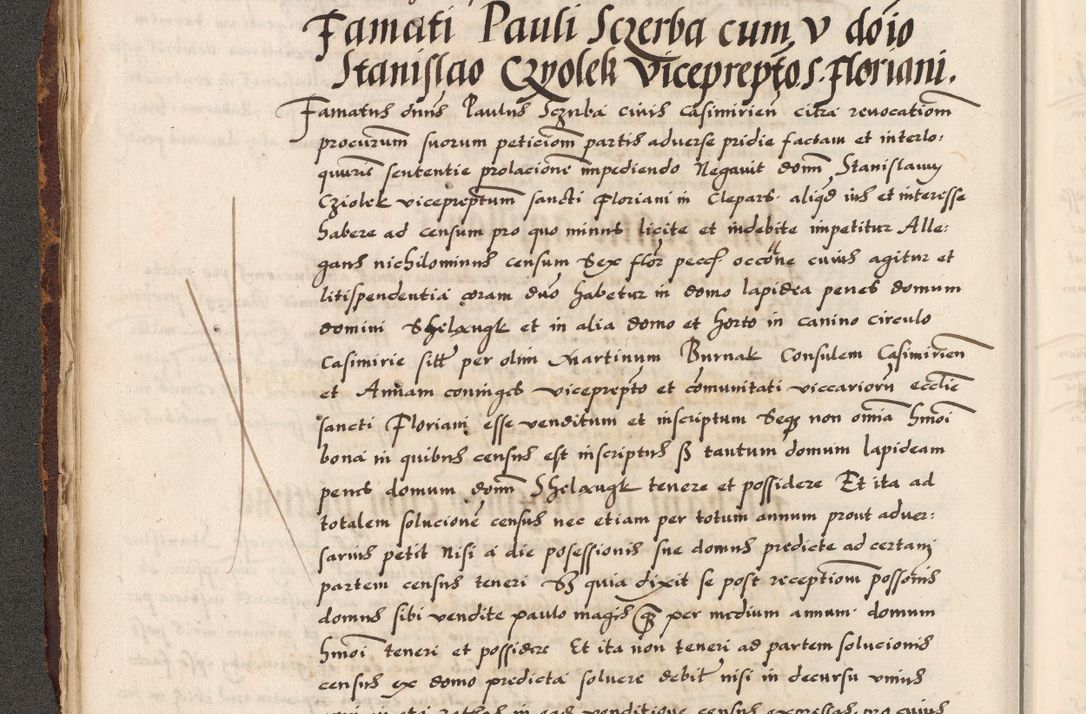 Famati Pauli Sczerba cum v doīo
Stanislao Czyolek viceprepto s. Floriani.
Famatus dnus Paulus Sczerba civis Casimirien citra revocationem
procurum suorum peticiom partis adverse pridie factam et interlo:
sententie prolacione impediendo Negavit domn Stanislaum
Cziolek viceprepositum sancti Floriani in Clepars. aliqd ius et interesse
habere ad censum pro quo minus licite et indebite impetitur Alle:
gans nichilominus censum Sex flor pecc occone cuius agitur et
litispendentia coram duo habetur in domo lapidea penes domum
domini Shelazugk et in alia domo et horto in canino circulo
Casimirie sitt per olim Martinum Burnak Consulem Casimirien
et Annam coniuges viceprepto et comunitati viccariorum ecclie
sancti Floriani esse venditum et inscriptum Seqz non omnia hmoi
bona in quibus census est inscriptus sz tantum domum lapideam
penes domum domn Shelazugk tenere et possidere Et ita ad
totalem solucione census nec etiam per totum annum prout adver:
sarius petit Nisi a die posessionis sue domus predicte ad certam
partem census teneri Sz quia dixit se post receptiom possonis
domus sibi vendite paulo magis qz per medium annum domum
hmoi teneri et possidere Et ita non teneri ad partem solucionis
census ex domo predicta solvere debitr nisi in decursu unius